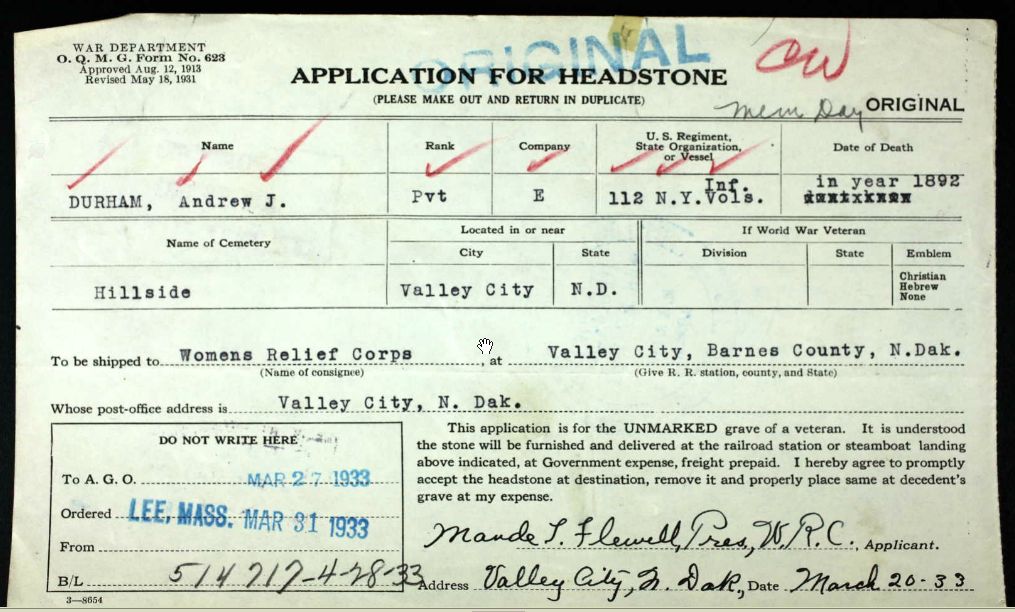 WAR DEPARTMENT
O. Q. M. G. Form No. 623
Approved Aug. 12, 1913
Revised May 18, 1931
ORIGINAL
CW
APPLICATION FOR HEADSTONE
(PLEASE MAKE OUT AND RETURN IN DUPLICATE)
Mem Day
ORIGINAL
Name
Rank
Company
U. S. Regiment,
State Organization,
or Vessel
Date of Death
DURHAM, Andrew J.
Pvt
E
112 N.Y. Inf. Vols.
in year 1892
Name of Cemetery
Located in or near
City
State
If World War Veteran
Division
State
Emblem
Hillside
Valley City
N.D.
Christian
Hebrew
None
To be shipped to Womens Relief Corps, at Valley City, Barnes County, N.Dak.
(Name of consignee) (Give R. R. station, county, and State)
Whose post-office address is Valley City, N. Dak.
DO NOT WRITE HERE
To A. G. O. MAR 27 1933
Ordered LEE, MASS. MAR 31 1933
From
B/L 514717-4-28-33
3—8654
This application is for the UNMARKED grave of a veteran. It is understood
the stone will be furnished and delivered at the railroad station or steamboat landing
above indicated, at Government expense, freight prepaid. I hereby agree to promptly
accept the headstone at destination, remove it and properly place same at decedent's
grave at my expense.
Maude T. Flewell, Pres, W.R.C., Applicant.
Address Valley City, N. Dak, Date March 20-33